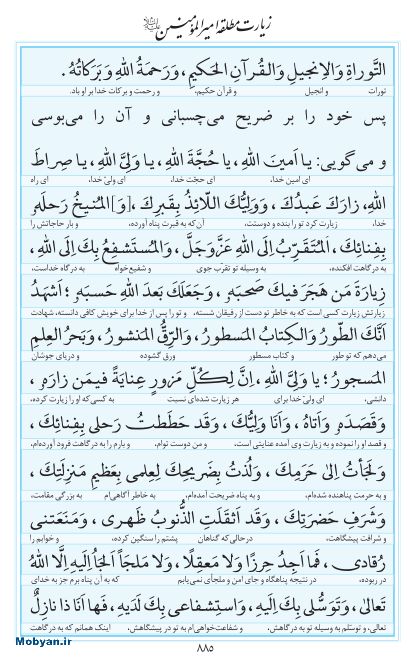 زیارت مطلقه امیرالمؤمنین علیه‌السلام
التَّوراةِ وَالاِنجیلِ وَالقُرآنِ الحَکیمِ، وَرَحمَةُ اللهِ وَبَرَکاتُهُ .
تورات و انجیل و قرآن حکیم، و رحمت و برکات خدا بر او باد.
پس خود را بر ضریح می‌چسبانی و آن را می‌بوسی
و می‌گویی: یا اَمینَ اللهِ، یا حُجَّةَ اللهِ، یا وَلِیَّ اللهِ، یا صِراطَ
ای امین خدا، ای حجّت خدا، ای ولیّ خدا، ای راه
اللهِ، زارَکَ عَبدُکَ ، وَوَلِیُّکَ اللّائِذُ بِقَبرِکَ ،[وَ]المُنیخُ رَحلَهُ
خدا، زیارت کرد تو را بنده و دوستت، آن‌که به قبرت پناه آورده، و بار حاجاتش را
بِفِنائِکَ ، اَلمُتَقَرِّبُ اِلَی اللهِ عَزَّوَجَلَّ ، وَالمُستَشفِعُ بِکَ اِلَی اللهِ ،
به درگاهت افکنده، به وسیله تو تقرب جوی و شفیع‌خواه به درگاه خداست،
زِیارَةَ مَن هَجَرَ فیکَ صَحبَهُ ، وَجَعَلَکَ بَعدَ اللهِ حَسبَهُ ؛ اَشهَدُ
زیارتش زیارت کسی است که به خاطر تو دست از رفیقان شسته، و تو را پس از خدا برای خویش کافی دانسته، شهادت
اَنَّکَ الطّورُ وَالکِتابُ المَسطورُ ، وَالرِّقُّ المَنشورُ ، وَبَحرُ العِلمِ
می‌دهم که تو طور و کتاب مسطور ورق گشوده و دریای جوشان
المَسجورُ ؛ یا وَلِیَّ اللهِ، اِنَّ لِکُلِّ مَزورٍ عِنایَةً فیمَن زارَهُ ،
دانشی، ای ولیّ خدا برای هر زیارت شده‌ای نسبت به کسی‌که او را زیارت کرده،
وَقَصَدَهُ وَاَتاهُ ، وَاَنَا وَلِیُّکَ ، وَقَد حَطَطتُ رَحلی بِفِنائِکَ ،
و قصد او را نموده و به زیارت وی آمده عنایتی است. و من دوست توام، و بارم را به درگاهت فرود آورده‌ام،
وَلَجَأتُ اِلیٰ حَرَمِکَ ، وَلُذتُ بِضَریحِکَ لِعِلمی بِعَظیمِ مَنزِلَتِکَ ،
و به حرمت پناهنده شده‌ام، و به پناه ضریحت آمده‌ام، به خاطر آگاهی‌ام به بزرگی مقامت،
وَشَرَفِ حَضرَتِکَ ، وَقَد اَثقَلَتِ الذُّنوبُ ظَهری ، وَمَنَعَتنی
و شرافت پیشگاهت، درحالی‌که گناهان پشتم را سنگین کرده، و خوابم را
رُقادی ، فَما اَجِدُ حِرزًا وَلا مَعقِلًا ، وَلا مَلجَأً اَلجَأُ اِلَیهِ اِلَّا اللهُ
در ربوده، در نتیجه پناهگاه و جای امن و ملجأی نمی‌یابم که به آن پناه برم جز به خدای
تَعالیٰ ، وَتَوَسُّلی بِکَ اِلَیهِ ، وَاستِشفاعی بِکَ لَدَیهِ ، فَها اَنَا ذا نازِلٌ
تعالی، و توسّلم به وسیله تو به درگاهش، و شفاعت‌خواهی‌ام به تو در پیشگاهش، اینک همانم که به درگاهت
۸۸۵
Mobyan.ir